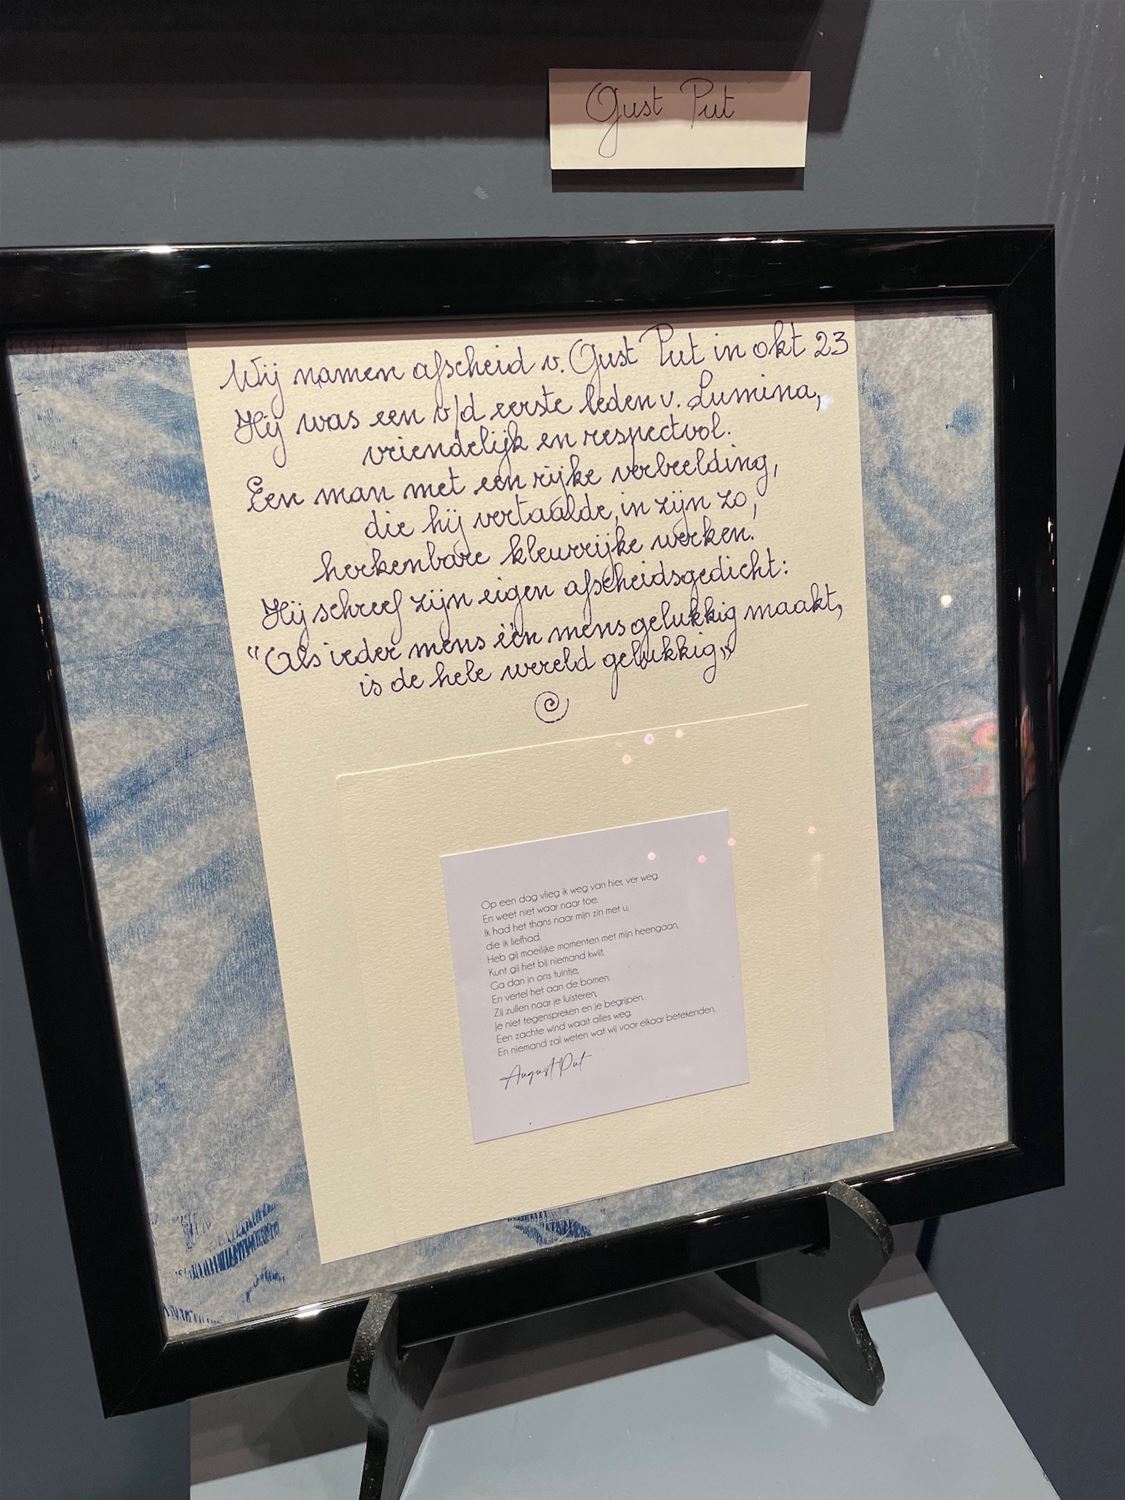 Gust Put
Wij namen afscheid v. Gust Put in okt 23
Hij was een v/d eerste leden v. Lumina,
vriendelijk en respectvol.
Een man met een rijke verbeelding,
die hij vertaalde, in zijn zo,
herkenbare kleurrijke werken.
Hij schreef zijn eigen afscheidsgedicht:
"Als ieder mens één mens gelukkig maakt,
is de hele wereld gelukkig"
Op een dag vlieg ik weg van hier, ver weg.
En weet niet waar naar toe.
Ik had het thans naar mijn zin met u,
die ik liefhad.
Heb gij moeilijke momenten met mijn heengaan,
Kunt gij het bij niemand kwijt,
Ga dan in ons tuintje,
En vertel het aan de bomen.
Zij zullen naar je luisteren,
Je niet tegenspreken en je begrijpen.
Een zachte wind waait alles weg.
En niemand zal weten wat wij voor elkaar betekenden.
August Put